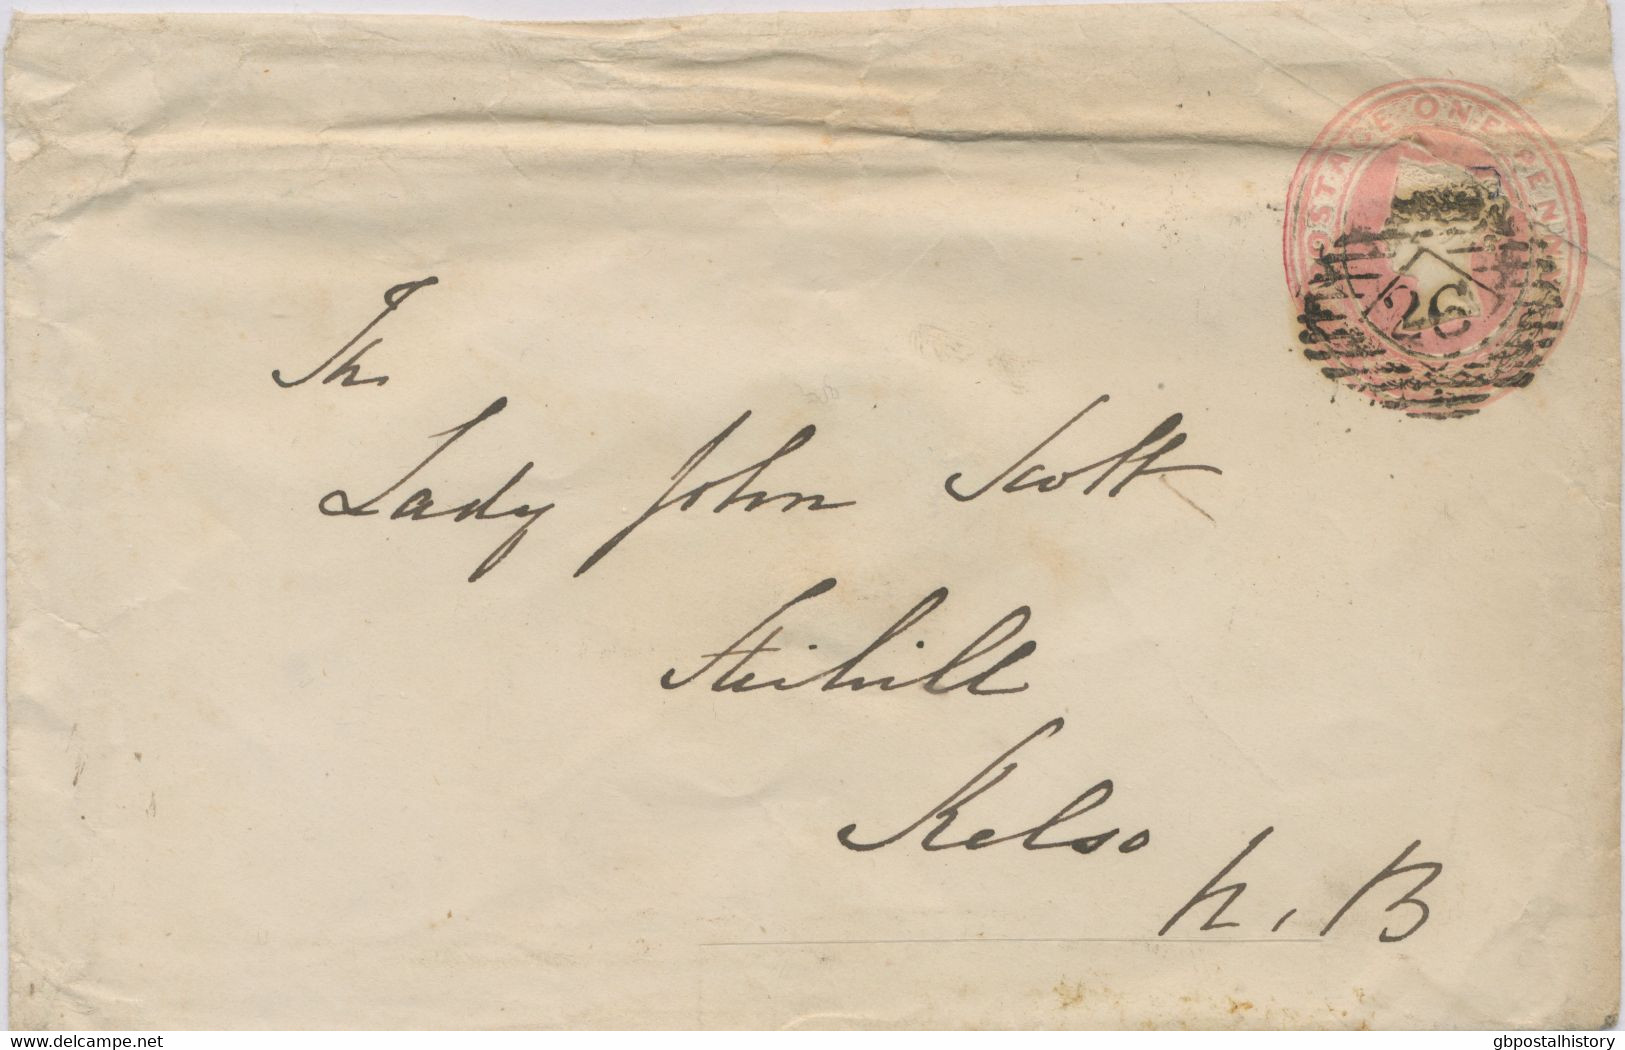 POSTAGE ONE PENNY
26
The
Lady John Scott
Stichill
Kelso
N. B
delcampe.net
gbpostalhistory